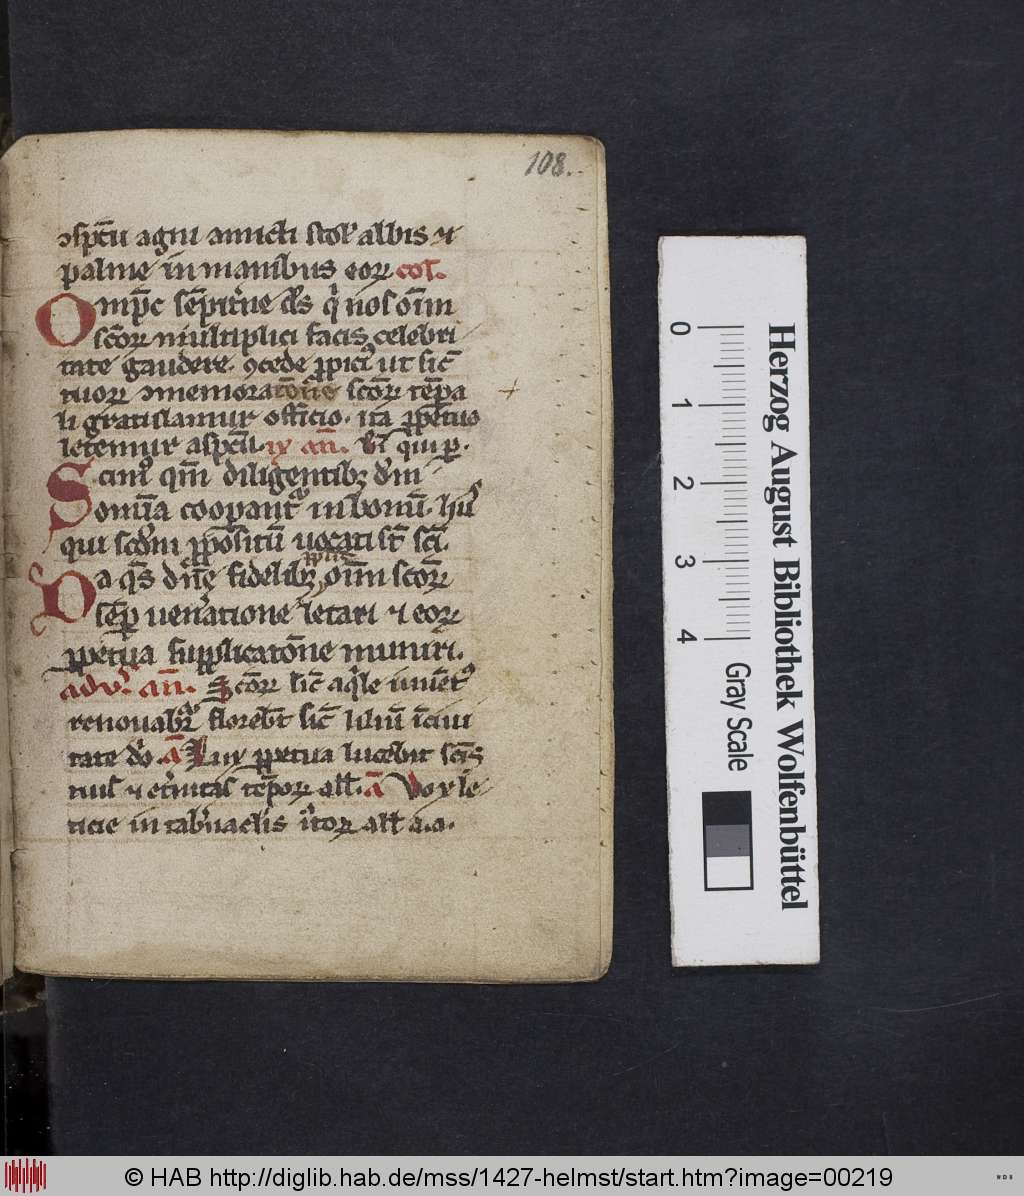 108.
ɔspc̄tu agni amicti stol' albis ⁊
palme in manibus eoꝝ col.
Omp̄c se̅pit'ne ds̄ q' nos om̄im
sc̄oꝝ multiplici facis celebri
tate gaudere. ꝯcede ꝓpici' ut sic̄
tuoꝝ ɔmemoratōne sc̄oꝝ te̅pa
li gratulamur officio. ita ꝑpetuo
letemur aspc̄tu. ix an̄. qui ꝑ.
Scim' qm̄ diligentibꝫ dm̄
omnia coopant' in bonū. hiis
qui scdm̄ ꝓpositū uocati st̄ sc̄i.
Da qs̄ dn̄e fidelibꝫ om̄im sc̄oꝝ
se̅ꝑ uen'atione letari ⁊ eoꝝ
ꝑpetua supplicatōne muniri.
ad v's' an̄. Sc̄oꝝ sic̄ aq'le iuuēt'
renouabr̄ floreb̄t sic̄ liliū ī ciui
tate d'o. a̅ Lux ꝑpetua lucebit sc̄is
tuis ⁊ et'nitas te̅poꝝ all̄. a̅ Vox le
ticie in tab'naclis iu̅toꝝ all̄ a.a.
0
1
2
3
4
Gray Scale
Herzog August Bibliothek Wolfenbüttel
© HAB http://diglib.hab.de/mss/1427-helmst/start.htm?image=00219